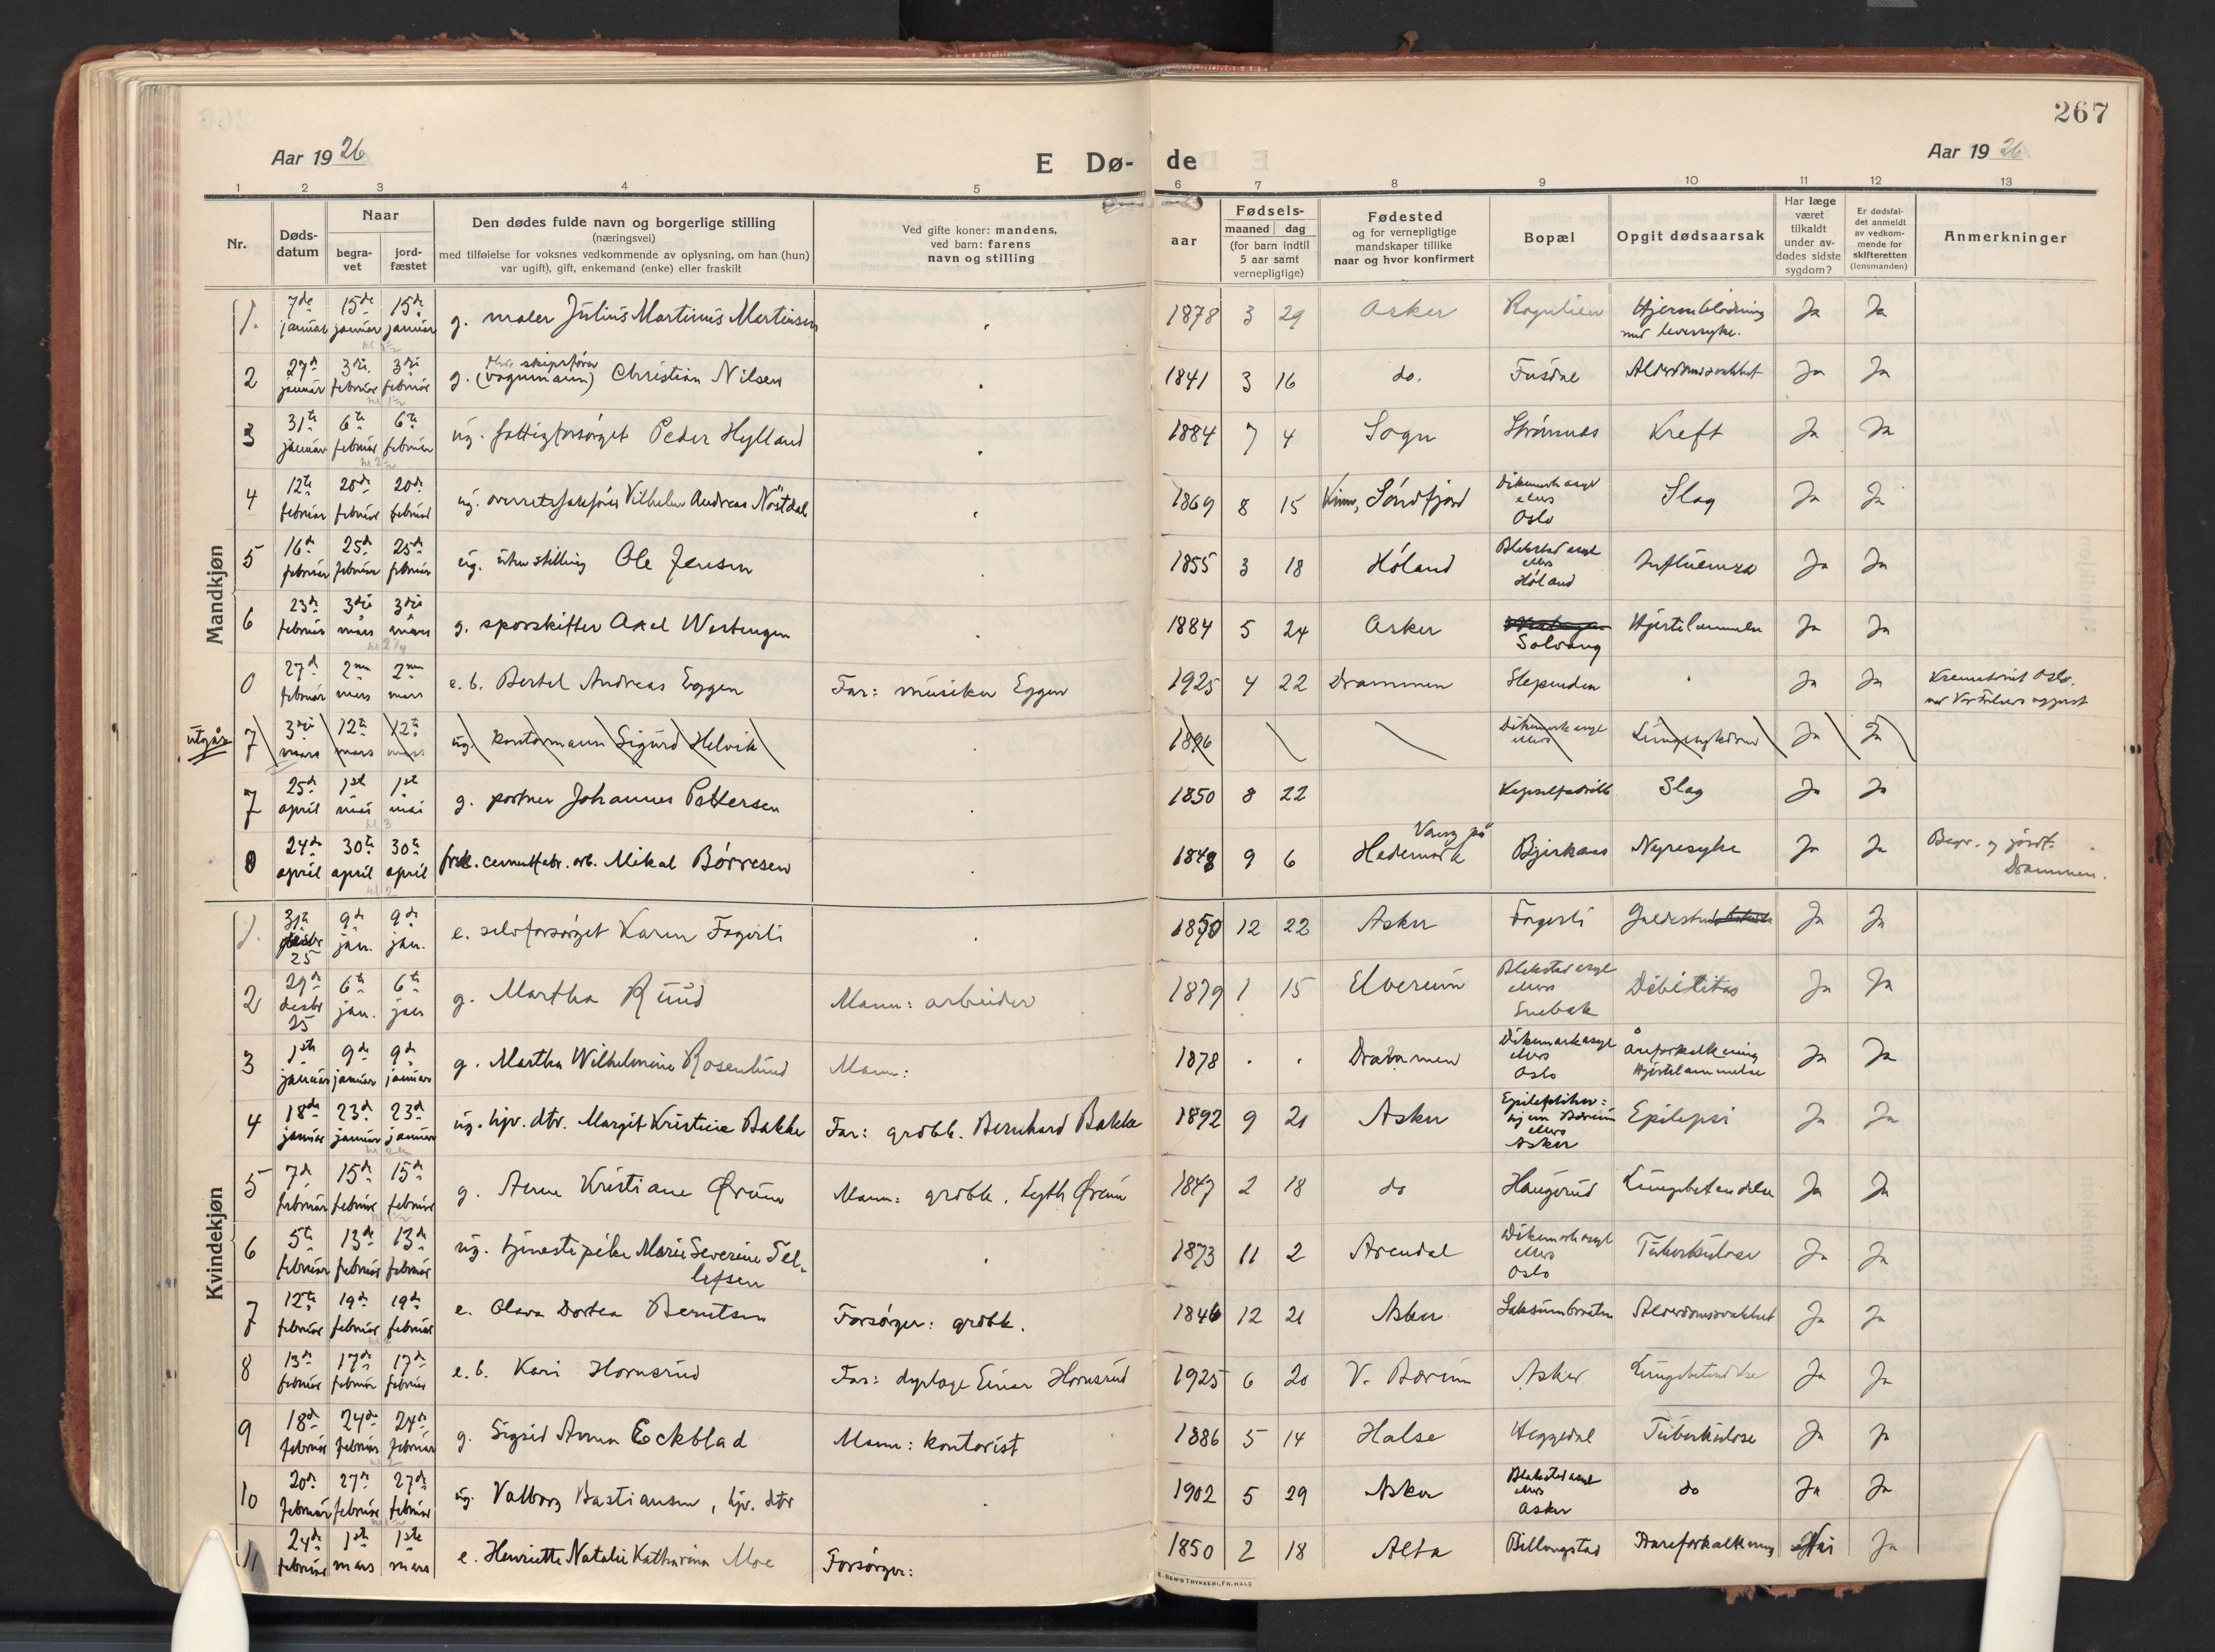 267
Aar 1926
E Dø- de
Aar 1926
1 2 3 4 5 6 7 8 9 10 11 12 13
Nr.
Døds-
datum
Naar
begra-
vet
jord-
fæstet
Den dødes fulde navn og borgerlige stilling
(næringsvei)
med tilføielse for voksnes vedkommende av oplysning, om han (hun)
var ugift), gift, enkemand (enke) eller fraskilt
Ved gifte koner: mandens,
ved barn: farens
navn og stilling
aar
Fødsels-
maaned dag
(for barn indtil
5 aar samt
vernepligtige)
Fødested
og for vernepligtige
mandskaper tillike
naar og hvor konfirmert
Bopæl
Opgit dødsaarsak
Har læge
været
tilkaldt
under av-
dødes sidste
sygdom?
Er dødsfal-
det anmeldt
av vedkom-
mende for
skifteretten
(lensmanden)
Anmerkninger
Mandkjøn
1. 7de januar 15de januar 15de januar g. maler Julius Martinius Martinsen 1878 3 29 Asker Hjerneblødning Ja Ja
med leversyke.
2 27de januar 3die februar 3die februar g. (vognmann) Christian Nilsen 1841 3 16 do. Fusdal Alderdomssvakhet Ja Ja
3 31te januar 6te februar 6te februar ug. fattigforsørget Peder Hylland 1884 7 4 Sogn Strømnes Kreft Ja Ja
4 12te februar 20de februar 20de februar ug. overretssakfører Vilhelm Andreas Nøstdal 1869 8 15 Kinn, Søndfjord Dikemark asyl ellers Oslo Slag Ja Ja
5 16de februar 25de februar 25de februar ug. uten stilling Ole Jensen 1855 3 18 Høland Blakstad asyl ellers Høland Influenza Ja Ja
6 23de februar 3die mars 3die mars g. sporskifter Axel Westengen 1884 5 24 Asker Solvang Hjertelammelse Ja Ja
0 27de februar 2nen mars 2nen mars e. b. Bertel Andreas Eggen Far: musiker Eggen 1925 4 22 Drammen Slependen Ja Ja Krematoriet Oslo.
utgår 7 3die mars 12te mars 12te mars ug. kontormann Sigurd Helvik 1896 Dikemark asyl ellers Lungesykdom Ja Ja
7 25de april 1ste mai 1ste mai g. portner Johannes Pettersen 1850 8 22 Kapselfabrikk Slag Ja Ja
8 24de april 30te april 30te april frsk. cementfabr. arb. Mikal Børresen 1848 9 6 Vang på Hedemark Bjerkaas Nyresyke Ja Ja Begr. og jordf. Drammen.
Kvindekjøn
1. 31te desbr 25 9de jan. 9de jan. e. selvforsørget Karen Fagerli 1850 12 22 Asker Fagerli Ja Ja
2 29de desbr 25 6te jan. 6te jan e. g. Martha Ruud Mann: arbeider 1879 1 15 Elverum Blakstad asyl ellers Enebak Debilitas Ja Ja
3 1ste januar 9de januar 9de januar g. Martha Wilhelmine Rosenlund Mann: 1878 . . Drammen Dikemark asyl ellers Oslo Åreforkalkning Hjertelammelse Ja Ja
4 18de januar 23de januar 23de januar ug. hjv. dtr. Margit Kristine Bakke Far: grdbk. Bernhard Bakke 1892 9 21 Asker Epileptiker: hjem Bærum ellers Asker Epilepsi Ja Ja
5 7de februar 15de februar 15de februar g. Anne Kristiane Øvrum Mann: grdbk. Øvrum 1847 2 18 do Haugerud Lungebetendelse Ja Ja
6 5te februar 13de februar 13de februar ug. tjenestepike Marie Severine Tel-
lefsen 1873 11 2 Arendal Dikemark asyl ellers Oslo Tuberkulose Ja Ja
7 12te februar 19de februar 19de februar e. Olava Dortea Berntsen Forsørger: grdbk. 1846 12 21 Asker Alderdomssvakhet Ja Ja
8 13de februar 17de februar 17de februar e. b. Kari Hornsrud Far: dyrlæge Einar Hornsrud 1925 6 20 V. Bærum Asker Lungebetendelse Ja Ja
9 18de februar 24de februar 24de februar g. Sigrid Anna Eckblad Mann: kontorist 1886 5 14 Halse Heggedal Tuberkulose Ja Ja
10 20de februar 27de februar 27de februar ug. Valborg Bastiansen, hjv. dtr 1902 5 29 Asker Blakstad asyl ellers Asker do Ja Ja
11 24de februar 1ste mars 1ste mars e. Henriette Natalie Katharina Moe Forsørger: 1850 2 18 Alta Billingstad Aareforkalkning Nei Ja